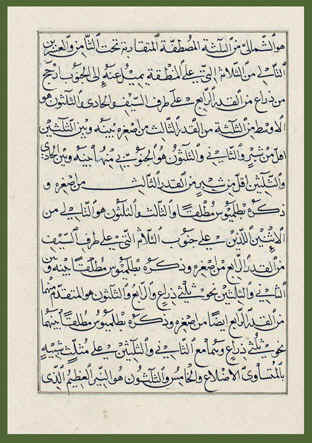 هو الشمالىّ من الثلثة المصطفّة المتقاربة تحت الثامن والعشرين
من الثلثة التى على المنطقة بميل عنه إلى الجنوب ارجح
من ذراع من القدر الرابع على طرف السيف والحادى والثلثون هو
الاوسط من الثلثة من القدر الثالث من اصغره بينه وبين الثلثين
اقلّ من شبر والثانى والثلثون هو الجنوبى منها بينه وبين الحادى
والثلثين اقلّ من شبر من القدر الثالث من اصغره و
ذكره بطلميوس مطلقاً والثالث والثلثون هو الثانى من
الاثنين اللذين على جنوب على طرف السيف
من القدر الرابع من اصغره وذكره بطلميوس مطلقاً بينه وبين
الثانى والثلثين نحو ثلثى ذراع والرابع والثلثون هو المتقدّم منهما
من القدر الرابع ايضاً من اصغره وذكره بطلميوس مطلقاً بينهما
نحو ثلثى ذراع وهما مع الثانى والثلثين على مثلث شبيه
بالمتساوى الاضلاع والخامس والثلثون هو النيّر العظيم الذى